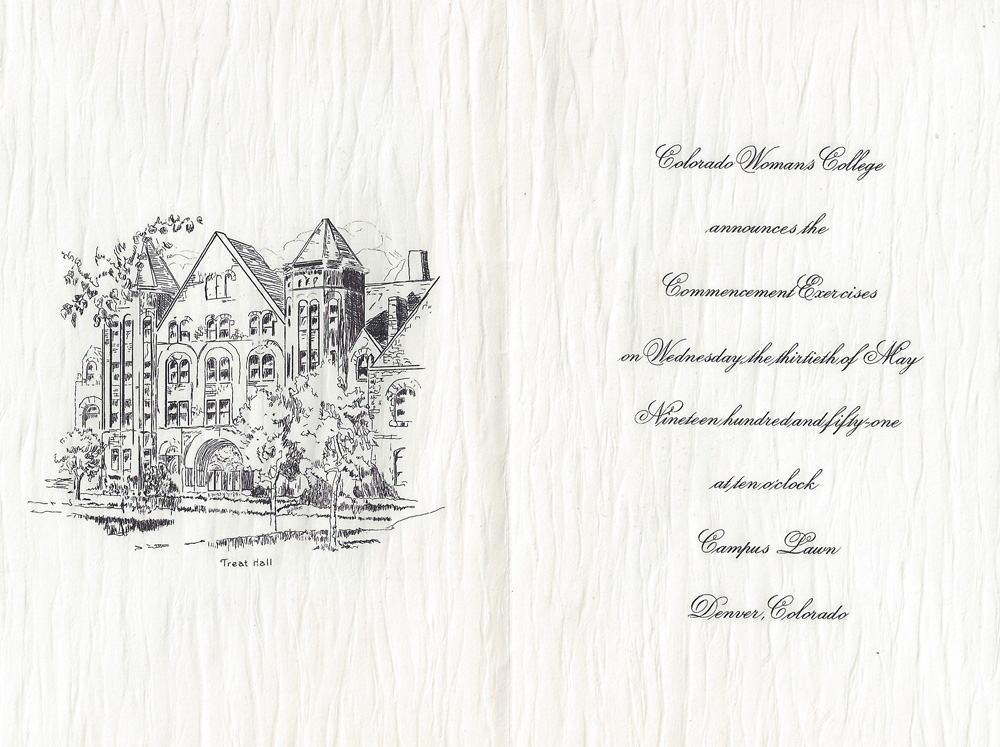 Treat Hall
Colorado Womans College
announces the
Commencement Exercises
on Wednesday, the thirtieth of May
Nineteen hundred and fifty-one
at ten o'clock
Campus Lawn
Denver, Colorado